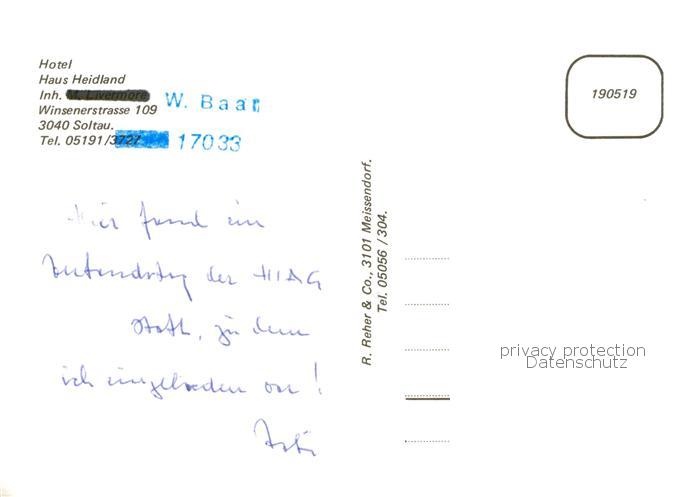 Hotel
Haus Heidland
Inh. M. Livermore W. Baar
Winsenerstrasse 109
3040 Soltau.
Tel. 05191/3727 17033
190519
Hier fand ein
der HIAG
statt, zu dem
ich eingeladen war!
R. Reher & Co., 3101 Meissendorf.
Tel. 05056 / 304.
privacy protection
Datenschutz